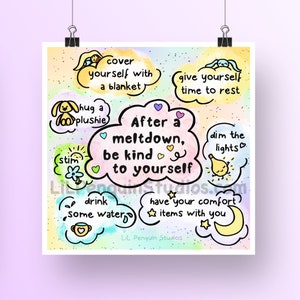 cover
yourself with
a blanket
give yourself
time to rest
hug a
plushie
After a
meltdown,
be kind
to yourself
dim the
lights
stim
LilPenguinStudios.com
drink
some water
have your comfort
items with you
LiL Penguin Studios